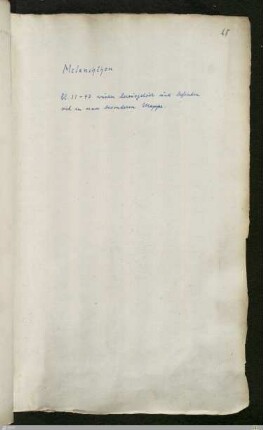 65
Melanchthon
Bl. 31-40 wurden herausgelöst und befinden
sich in einer besonderen Mappe.